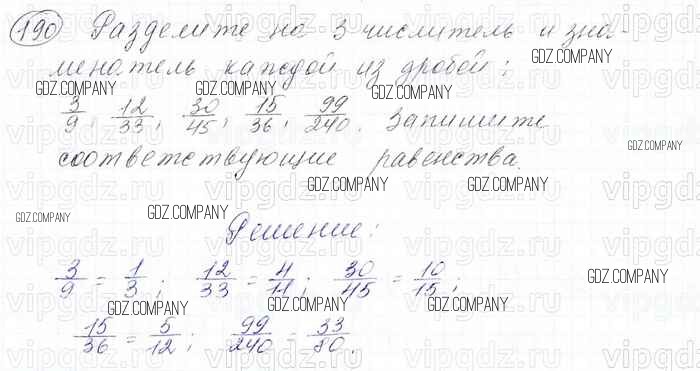 190 Разделите на 3 числитель и зна-
менатель каждой из дробей:
3/9, 12/33, 30/45, 15/36, 99/240. Запишите
соответствующие равенства.
Решение:
3/9 = 1/3; 12/33 = 4/11; 30/45 = 10/15;
15/36 = 5/12; 99/240 = 33/80.
GDZ.COMPANY
GDZ.COMPANY
GDZ.COMPANY
GDZ.COMPANY
GDZ.COMPANY
GDZ.COMPANY
GDZ.COMPANY
GDZ.COMPANY
GDZ.COMPANY
GDZ.COMPANY
GDZ.COMPANY
GDZ.COMPANY
GDZ.COMPANY
vipgdz.ru